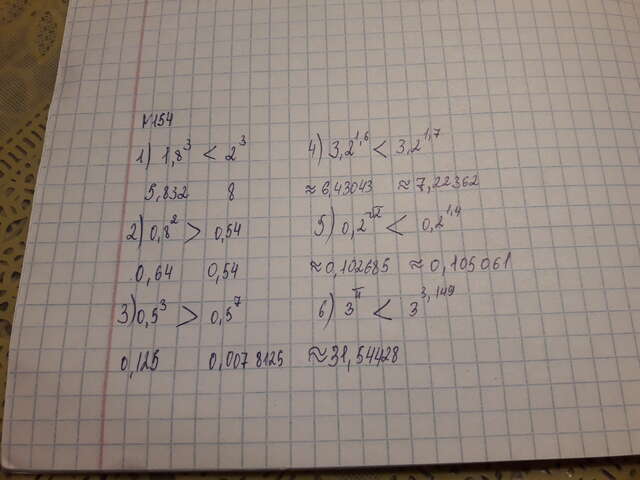 №154
1) 1,8³ < 2³
5,832 8
2) 0,8² > 0,54
0,64 0,54
3) 0,5³ > 0,5⁷
0,125 0,0078125
4) 3,2^1,6 < 3,2^1,7
≈6,43043 ≈7,22362
5) 0,2^√2 < 0,2^1,4
≈0,102685 ≈0,105061
6) 3^π < 3^3,149
≈31,54428